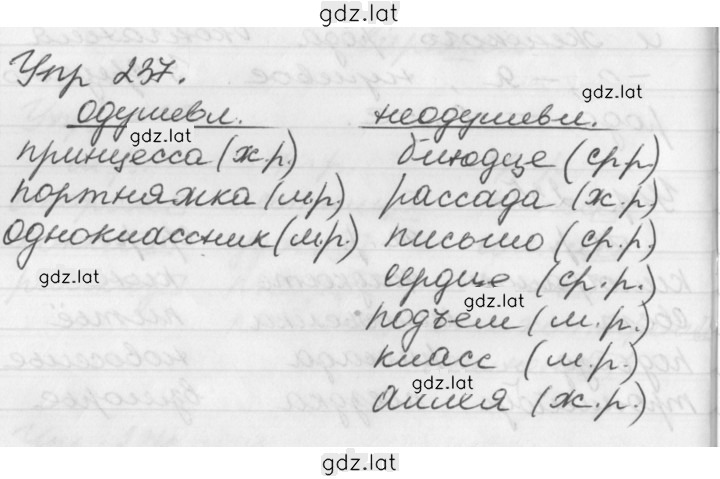 gdz.lat
Упр 237.
одушевл. неодушевл.
gdz.lat
gdz.lat
принцесса (ж.р.) блюдце (ср.р)
портняжка (м.р) рассада (ж.р)
одноклассник (м.р.) письмо (ср.р.)
gdz.lat
сердце (ср.р.)
gdz.lat
подъем (м.р.)
класс (м.р.)
gdz.lat
аллея (ж.р.)
gdz.lat